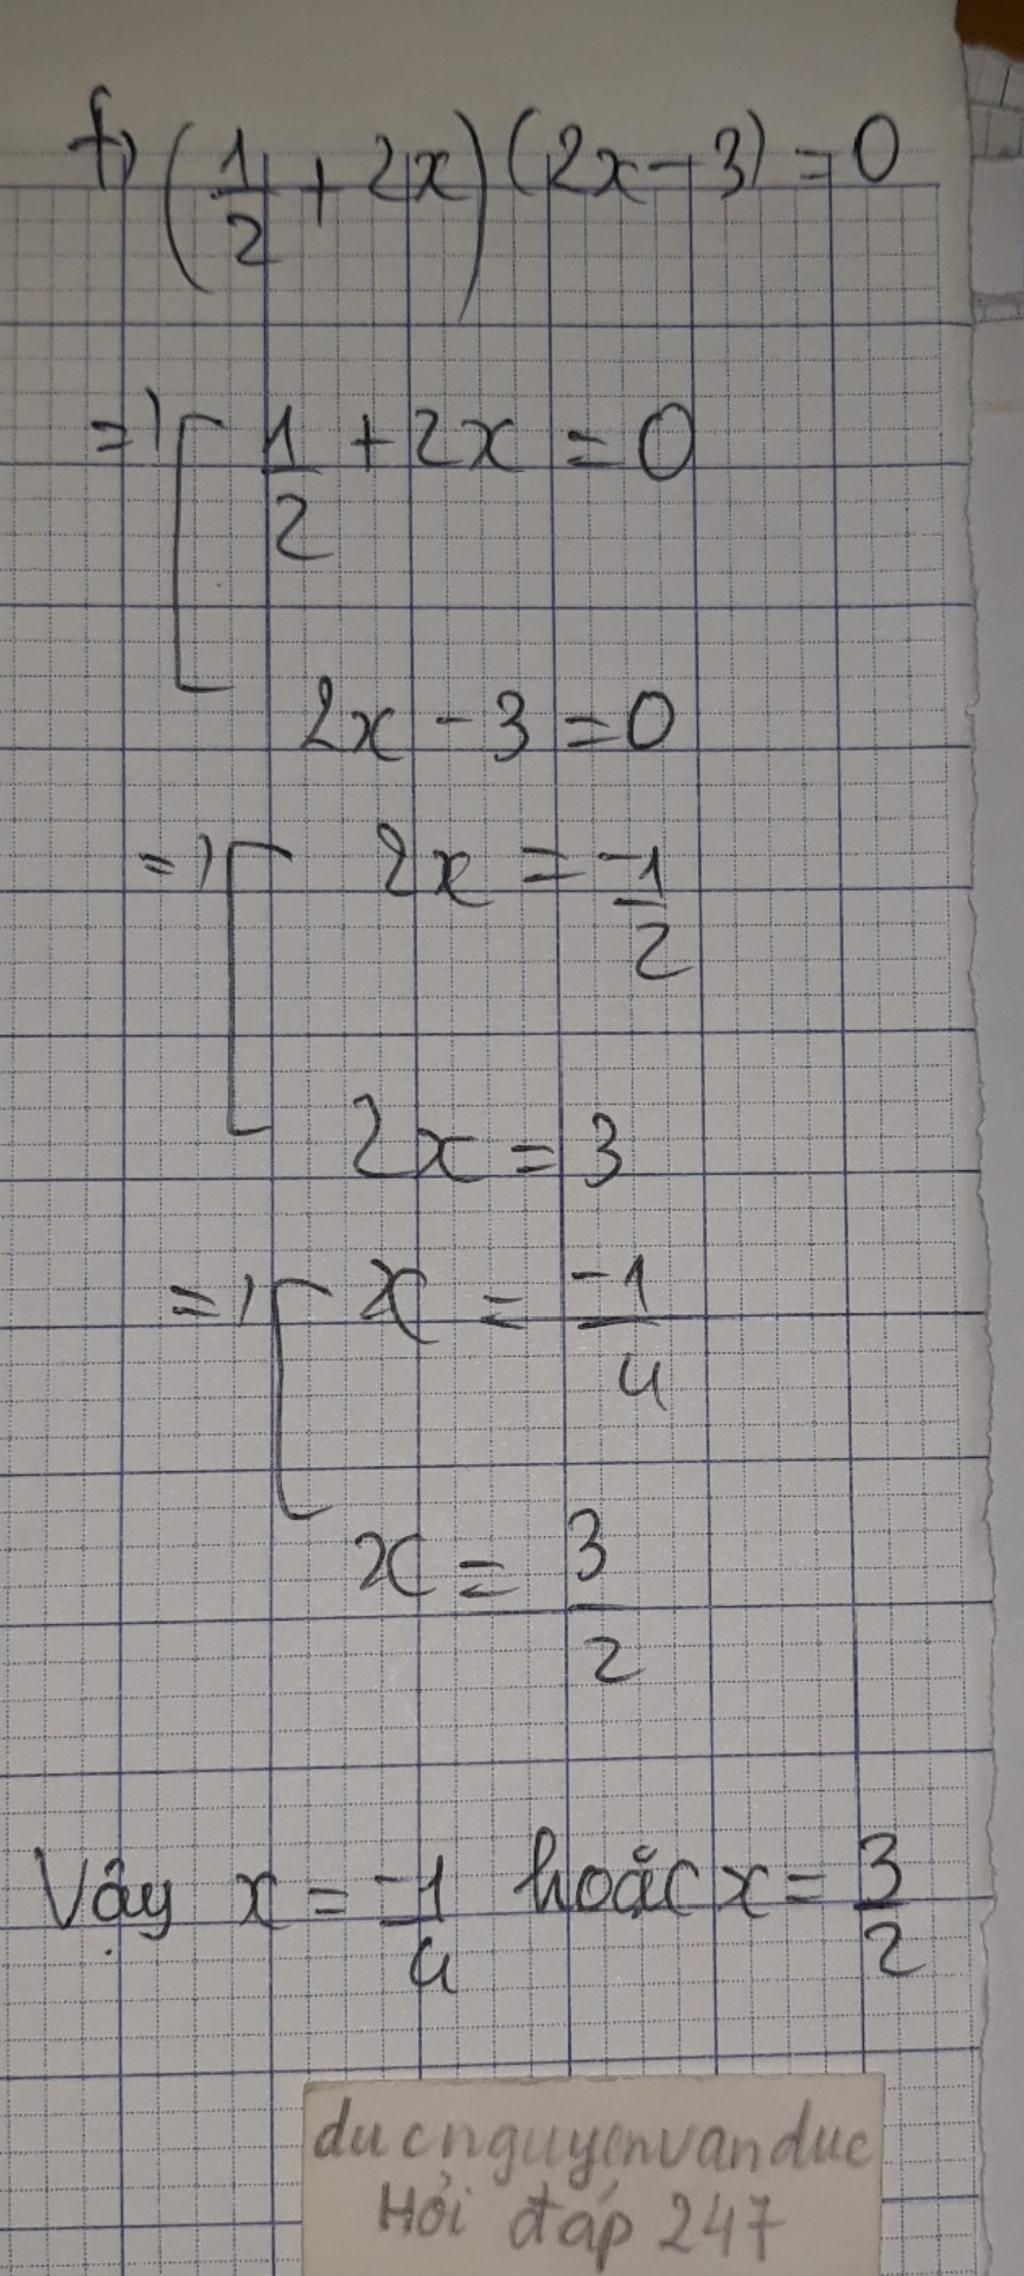 f) (1/2 + 2x) (2x - 3) = 0
=> [ 1/2 + 2x = 0
2x - 3 = 0
=> [ 2x = -1/2
2x = 3
=> [ x = -1/4
x = 3/2
Vậy x = -1/4 hoặc x = 3/2
ducnguyenvanduc
Hỏi đáp 247